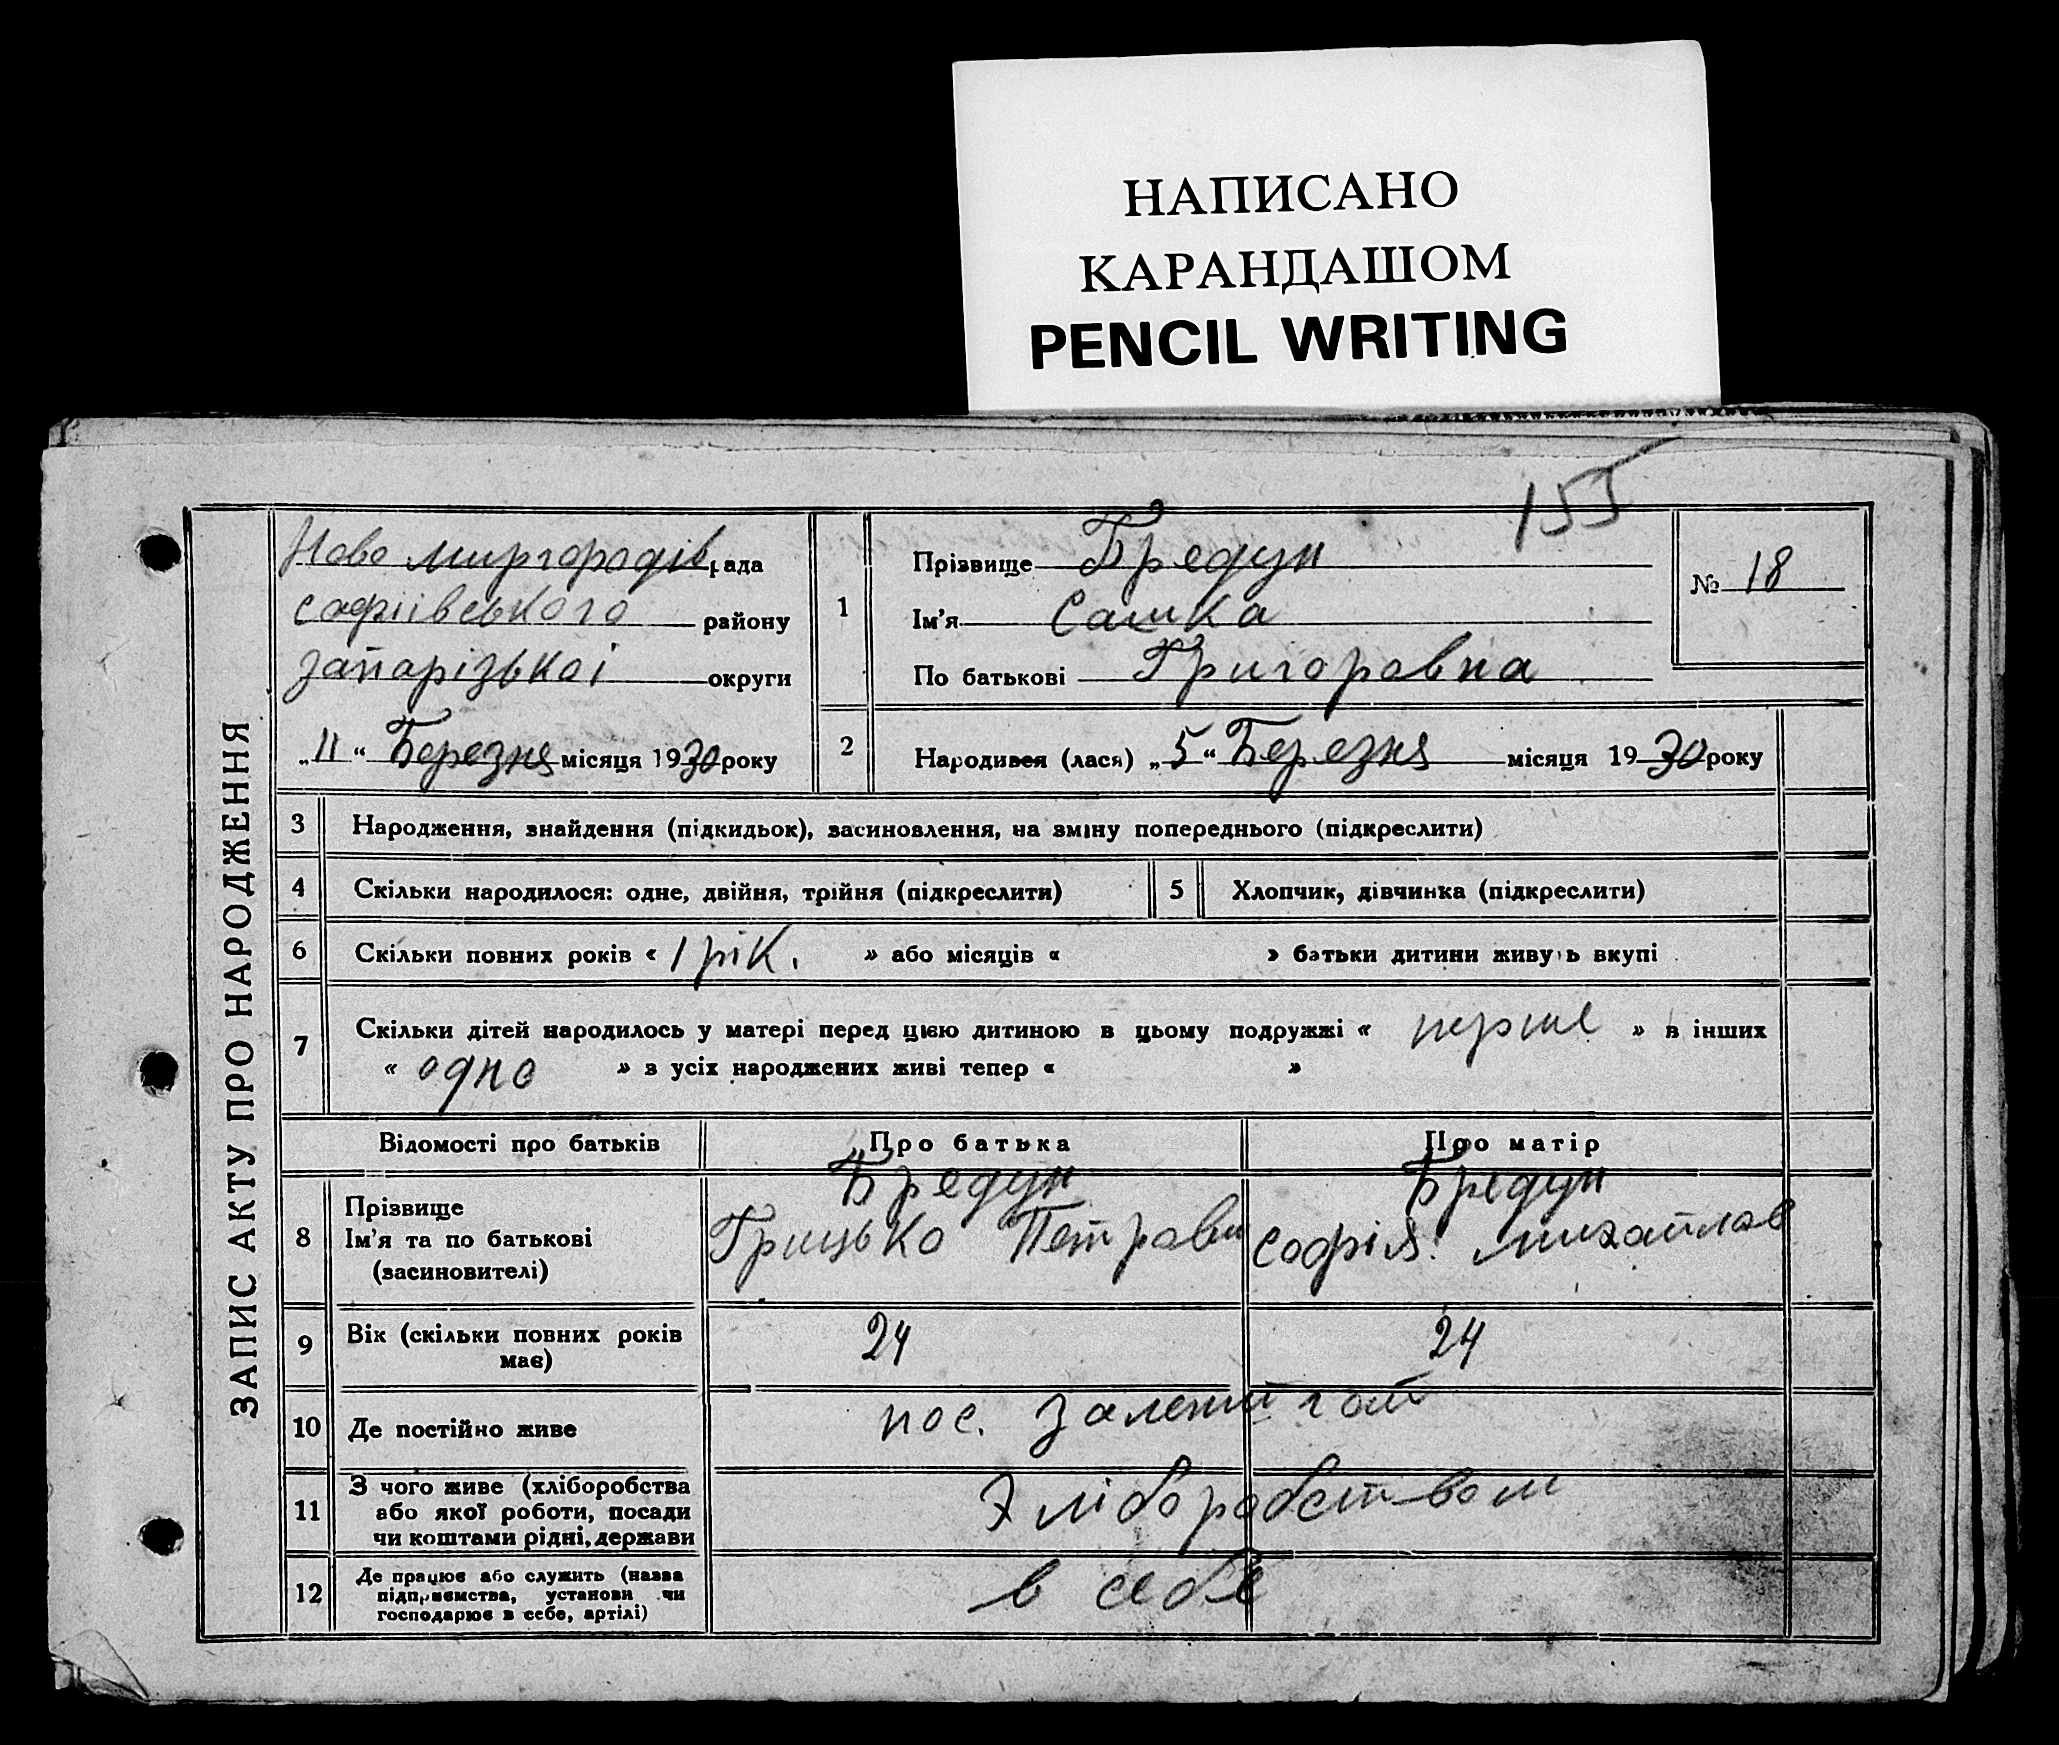 НАПИСАНО
КАРАНДАШОМ
PENCIL WRITING
155
ЗАПИС АКТУ ПРО НАРОДЖЕННЯ
Ново миргородів рада
софіівського району
запорізькоі округи
„11“ Березня місяця 1930 року
1
Прізвище Бредун
Ім'я Сашка
По батькові Григоровна
№ 18
2
Народився (лася) „5“ Березня місяця 1930 року
3 Народження, знайдення (підкидьок), засиновлення, на зміну попереднього (підкреслити)
4 Скільки народилося: одне, двійня, трійня (підкреслити) 5 Хлопчик, дівчинка (підкреслити)
6 Скільки повних років « 1 рік. » або місяців « » батьки дитини живуть вкупі
7 Скільки дітей народилось у матері перед цією дитиною в цьому подружжі « перше » в інших
« одно » з усіх народжених живі тепер « »
Відомості про батьків Про батька Про матір
8
Прізвище
Ім'я та по батькові
(засиновителі)
Бредун
Грицько Петрови
Бредун
Софія Михайлов
9
Вік (скільки повних років
має)
24 24
10 Де постійно живе
пос.
11
З чого живе (хліборобства
або якої роботи, посади
чи коштами рідні, держави
Хліборобством
12
Де працює або служить (назва
підприємства, установи чи
господарює в себе, артілі)
в себе